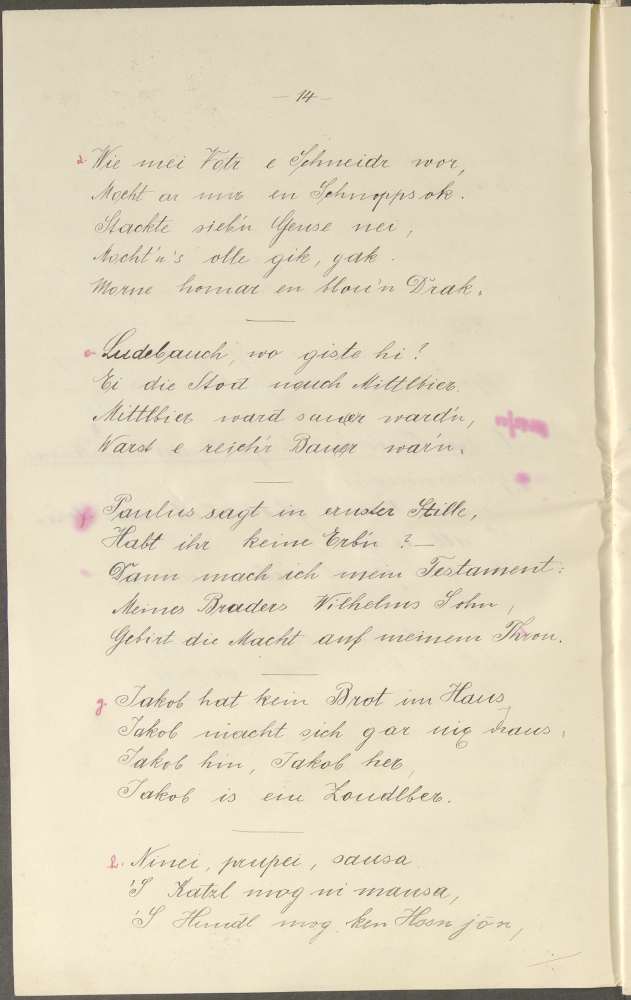 — 14 —
d. Wie mei Votr e Schneidr wor,
Mocht ar mir en Schnoppsok.
Stackte sieb'n Gense nei,
Mocht'n's olle gik, gak.
Morne homar en blou'n Drak.
e. Ludebauch, wo giste hi?
Ei die Stod nauch Mittlbier.
Mittlbier ward sauer ward'n,
Warst e reich'r Bauer war'n.
f. Paulus sagt in ernster Stille,
Habt ihr keine Erb'n? —
Dann mach ich mein Testament:
Meines Bruders Wilhelms Sohn,
Gebirt die Macht auf meinem Thron.
g. Jakob hat kein Brot im Haus,
Jakob macht sich gar nix draus,
Jakob hin, Jakob her,
Jakob is ein Zoudlber.
h. Ninei, prupei, sausa
'S Katzl mog ni mausa,
'S Hundl mog ken Hosn jôn,